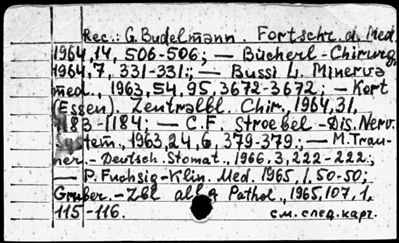 Rec.: G. Budelmann. Fortschr. d. Med.
1964, 14, 506-506; — Bücherl-Chirurg,
1964, 7, 331-331:; — Bussi L. Minerva
med., 1963, 54, 95, 3672-3672; — Kort
(Essen). Zentralbl. Chir., 1964, 31,
1183-1184; — C.F. Stroebel-Dis. Nerv.
System., 1963, 24, 6, 379-379.; — M. Trau-
ner.- Deutsch. Stomat. 1966. 3, 222-222;
— P. Fuchsig-Klin. Med. 1965, 1, 50-50;
Gruber.-Zbl allg Pathol., 1965, 107, 1,
115-116. см. след. карт.